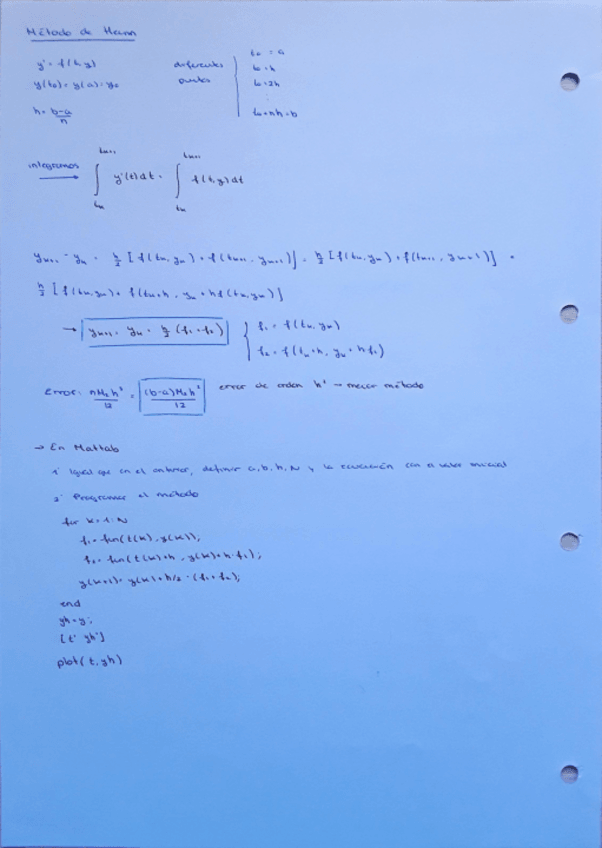 Método de Heun
y' = f(t, y)
y(t₀) = y(a) = y₀
h = b-a / n
diferentes puntos
t₀ = a
t₀+h
t₀+2h
⋮
t₀+nh = b
integramos → ∫ y'(t)dt = ∫ f(t,y)dt
yₙ₊₁ - yₙ = h/2 [f(tₙ,yₙ) + f(tₙ₊₁, yₙ₊₁)] = h/2 [f(tₙ,yₙ) + f(tₙ₊₁, yₙ₊₁)] =
h/2 [f(tₙ,yₙ) + f(tₙ+h, yₙ+hf(tₙ,yₙ)]
→ yₙ₊₁ = yₙ + h/2 (f₁+f₂)
f₁ = f(tₙ, yₙ)
f₂ = f(tₙ+h, yₙ+hf₁)
Error: = (b-a)M₂h² / 12 error de orden h² → mejor método
→ En Matlab
1º Igual que en el anterior, definir a, b, h, N y la ecuación con el valor inicial
2º Programar el método
for k=1:N
f₁ = fun(t(k), y(k));
f₂ = fun(t(k)+h, y(k)+h·f₁);
y(k+1) = y(k)+h/2·(f₁+f₂);
end
yh=y;
[t' yh']
plot(t,yh)